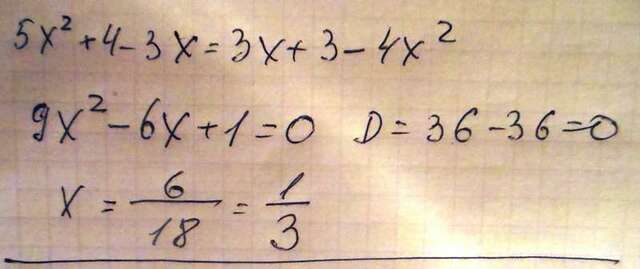 5x²+4-3x=3x+3-4x²
9x²-6x+1=0 D=36-36=0
x=6/18=1/3